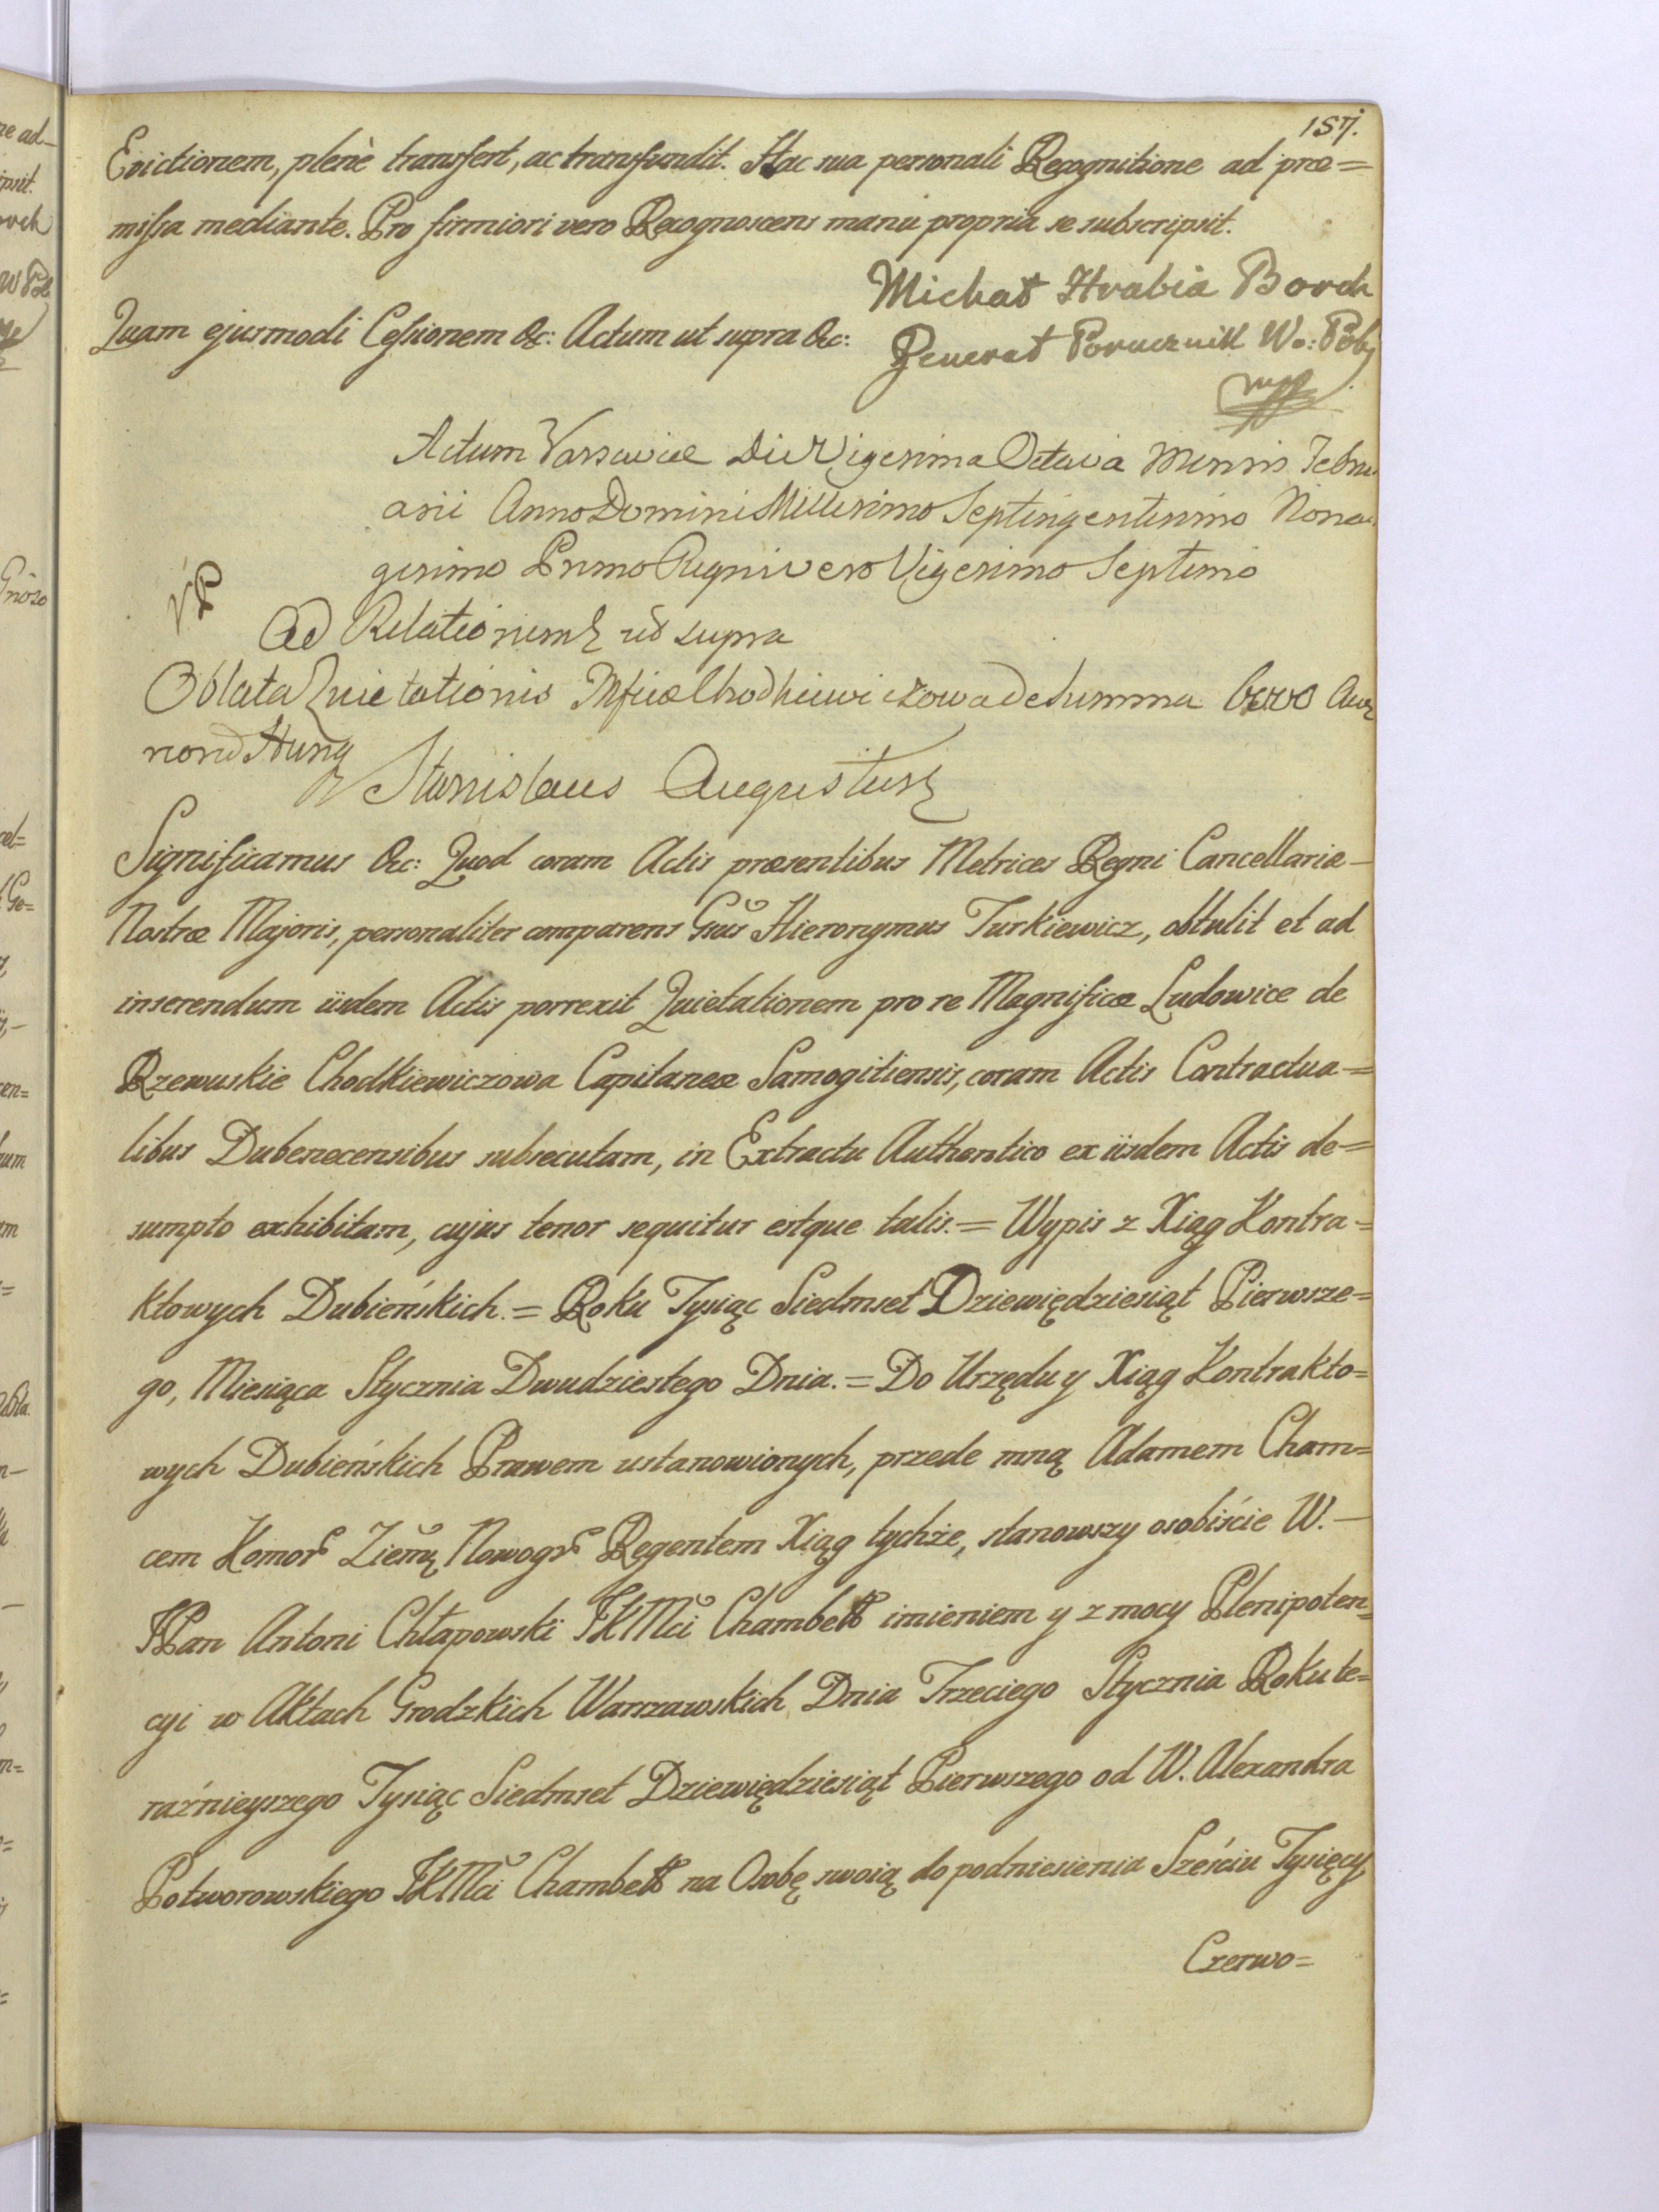 157.
Evictionem, plenè transfert, ac transfundit. Hac sua personali Recognitione ad præ=
missa mediante. Pro firmiori vero Recognoscens manu propria se subscripsit.
Michał Hrabia Borch
Quam ejusmodi Cessionem &c: Actum ut supra &c:
Generał Porucznik Wo: Pol:
mpp
Actum Varsaviæ Die Vigesima Octava Mensis Febru
arii Anno Domini Millesimo Septingentesimo Nona
gesimo Primo Regni vero Vigesimo Septimo
Ad Relationem ut supra
Oblata Quietationis Mficæ Chodkiewiczowa de summa 6000 Aur
Hung
Stanislaus Augustus
Significamus &c: Quod coram Actis præsentibus Metrices Regni Cancellariæ
Nostræ Majoris, personaliter comparens Gsus Hieronymus Turkiewicz, obtulit et ad
inserendum iisdem Actis porrexit Quietationem pro re Magnificæ Ludowice de
Rzewuskie Chodkiewiczowa Capitaneæ Samogitiensis, coram Actis Contractua=
libus Dubenecensibus subsecutam, in Extractu Authentico ex iisdem Actis de=
sumpto exhibitam, cujus tenor sequitur estque talis. = Wypis z Xiąg Kontra=
ktowych Dubieńskich. = Roku Tysiąc Siedmset Dziewiędziesiąt Pierwsze=
go, Miesiąca Stycznia Dwudziestego Dnia. = Do Urzędu y Xiąg Kontrakto=
wych Dubieńskich Prawem ustanowionych, przede mną Adamem Cham=
cem Komor Ziem Nowogr Regentem Xiąg tychże, stanowszy osobiście W. —
JPan Antoni Chłapowski JKMci Chambell imieniem y z mocy Plenipoten=
cyi w Aktach Grodzkich Warszawskich Dnia Trzeciego Stycznia Roku te=
raźnieyszego Tysiąc Siedmset Dziewiędziesiąt Pierwszego od W. Alexandra
Potworowskiego JKMci Chambell na Osobę swoią do podniesienia Sześciu Tysięcy
Czerwo=